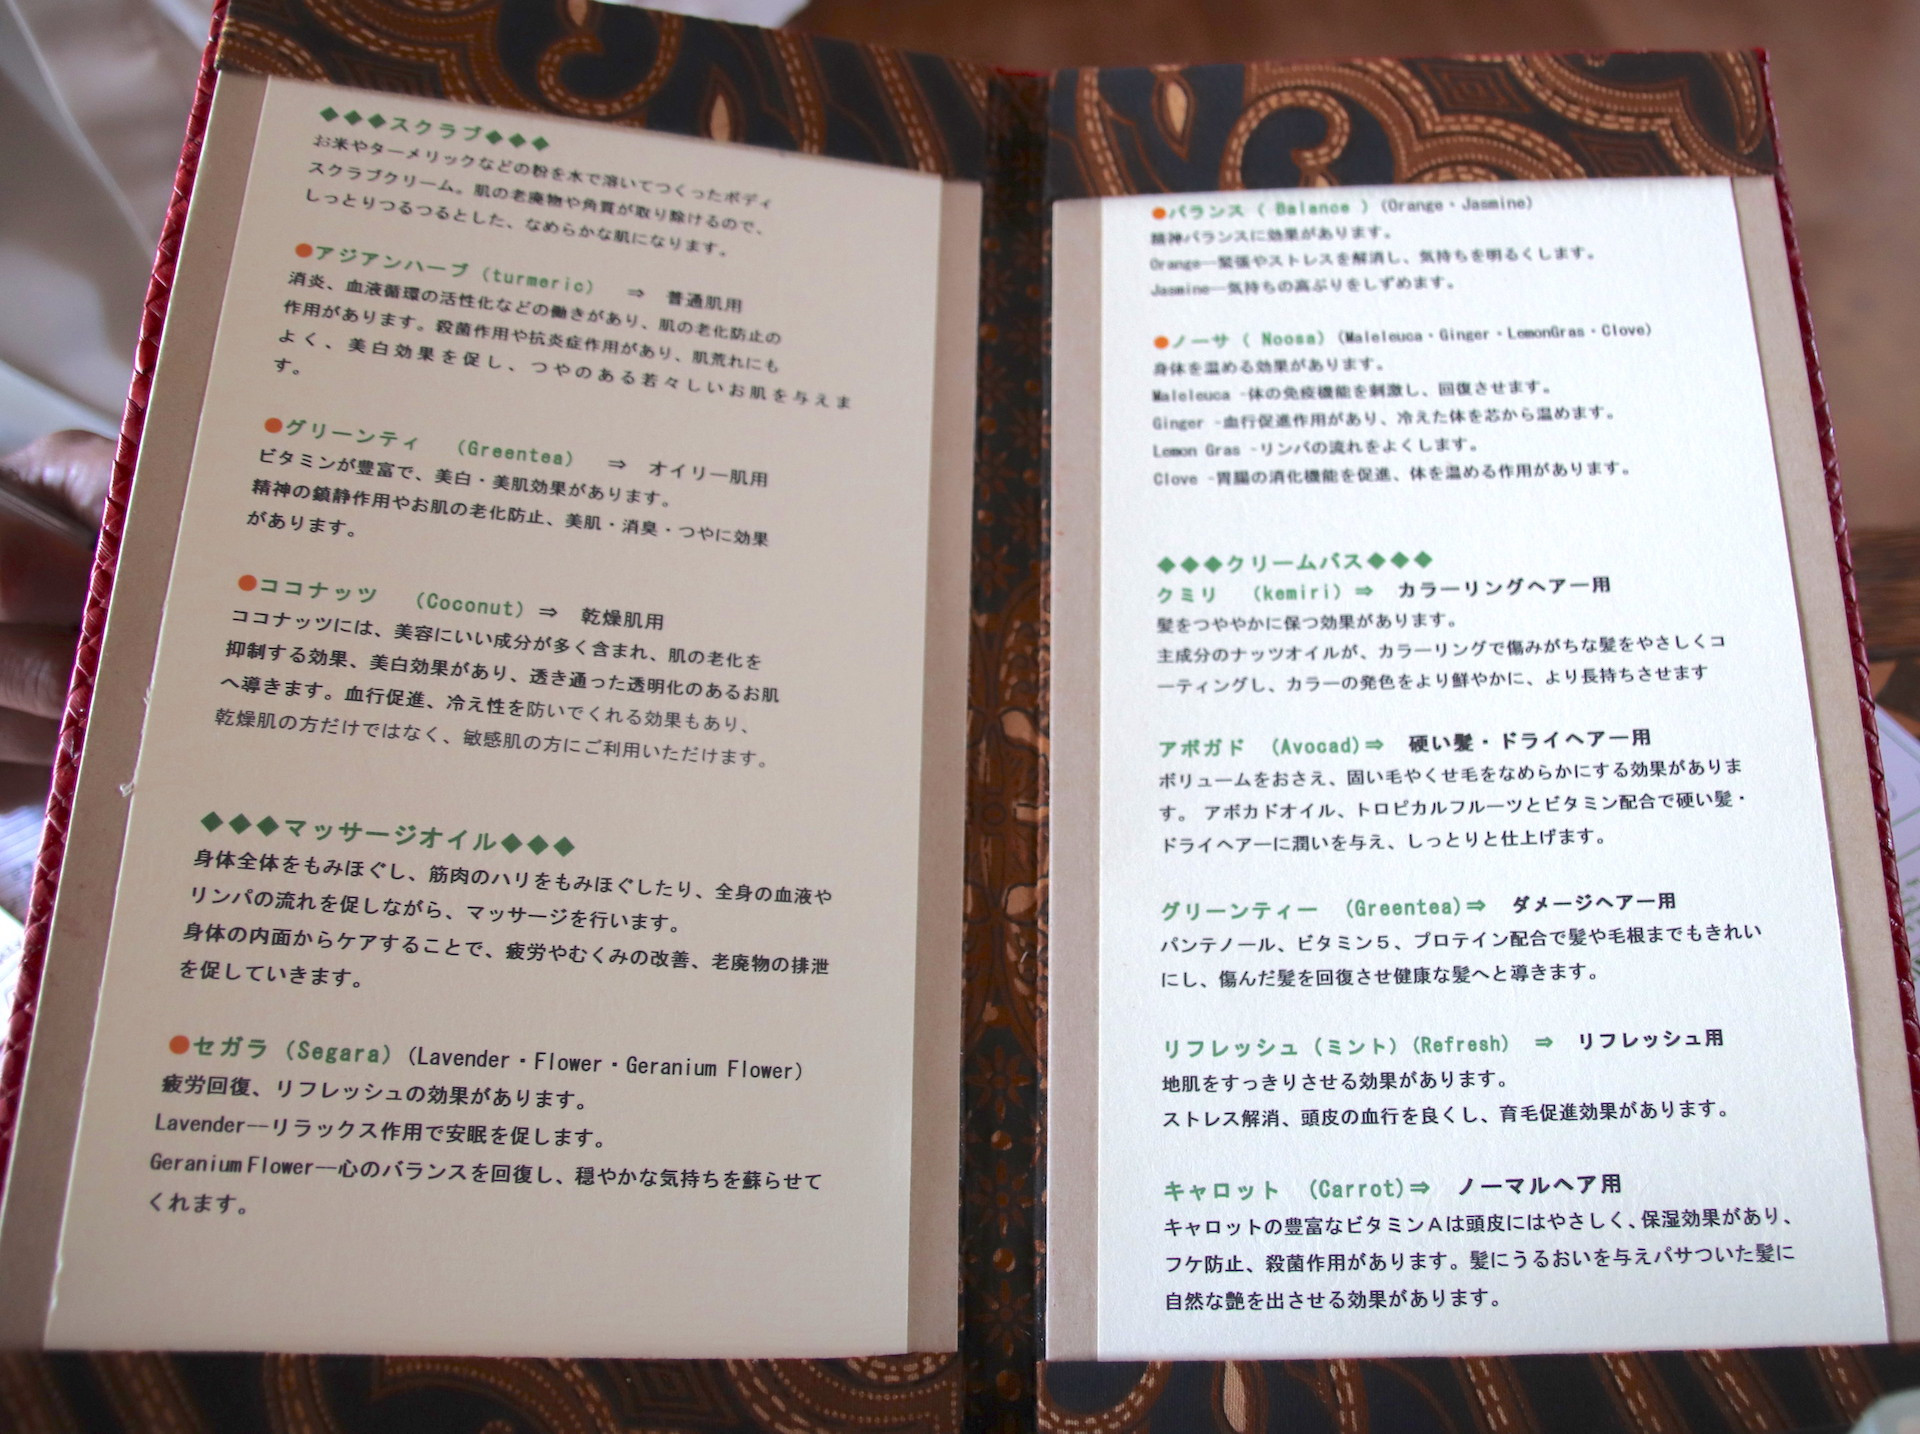 ◆◆◆スクラブ◆◆◆
お米やターメリックなどの粉を水で溶いてつくったボディ
スクラブクリーム。肌の老廃物や角質が取り除けるので、
しっとりつるつるとした、なめらかな肌になります。
●アジアンハーブ (turmeric) ⇒ 普通肌用
消炎、血液循環の活性化などの働きがあり、肌の老化防止の
作用があります。殺菌作用や抗炎症作用があり、肌荒れにも
よく、美白効果を促し、つやのある若々しいお肌を与えま
す。
●グリーンティ (Greentea) ⇒ オイリー肌用
ビタミンが豊富で、美白・美肌効果があります。
精神の鎮静作用やお肌の老化防止、美肌・消臭・つやに効果
があります。
●ココナッツ (Coconut) ⇒ 乾燥肌用
ココナッツには、美容にいい成分が多く含まれ、肌の老化を
抑制する効果、美白効果があり、透き通った透明化のあるお肌
へ導きます。血行促進、冷え性を防いでくれる効果もあり、
乾燥肌の方だけではなく、敏感肌の方にご利用いただけます。
◆◆◆マッサージオイル◆◆◆
身体全体をもみほぐし、筋肉のハリをもみほぐしたり、全身の血液や
リンパの流れを促しながら、マッサージを行います。
身体の内面からケアすることで、疲労やむくみの改善、老廃物の排泄
を促していきます。
●セガラ (Segara) (Lavender・Flower・Geranium Flower)
疲労回復、リフレッシュの効果があります。
Lavender--リラックス作用で安眠を促します。
Geranium Flower--心のバランスを回復し、穏やかな気持ちを蘇らせて
くれます。
●バランス ( Balance ) (Orange・Jasmine)
精神バランスに効果があります。
Orange--緊張やストレスを解消し、気持ちを明るくします。
Jasmine--気持ちの高ぶりをしずめます。
●ノーサ ( Noosa) (Maleleuca・Ginger・LemonGras・Clove)
身体を温める効果があります。
Maleleuca -体の免疫機能を刺激し、回復させます。
Ginger -血行促進作用があり、冷えた体を芯から温めます。
Lemon Gras -リンパの流れをよくします。
Clove -胃腸の消化機能を促進、体を温める作用があります。
◆◆◆クリームバス◆◆◆
クミリ (kemiri) ⇒ カラーリングヘアー用
髪をつややかに保つ効果があります。
主成分のナッツオイルが、カラーリングで傷みがちな髪をやさしくコ
ーティングし、カラーの発色をより鮮やかに、より長持ちさせます
アボガド (Avocad)⇒ 硬い髪・ドライヘアー用
ボリュームをおさえ、固い毛やくせ毛をなめらかにする効果がありま
す。 アボカドオイル、トロピカルフルーツとビタミン配合で硬い髪・
ドライヘアーに潤いを与え、しっとりと仕上げます。
グリーンティー (Greentea)⇒ ダメージヘアー用
パンテノール、ビタミン5、プロテイン配合で髪や毛根までもきれい
にし、傷んだ髪を回復させ健康な髪へと導きます。
リフレッシュ (ミント) (Refresh) ⇒ リフレッシュ用
地肌をすっきりさせる効果があります。
ストレス解消、頭皮の血行を良くし、育毛促進効果があります。
キャロット (Carrot)⇒ ノーマルヘア用
キャロットの豊富なビタミンAは頭皮にはやさしく、保湿効果があり、
フケ防止、殺菌作用があります。髪にうるおいを与えパサついた髪に
自然な艶を出させる効果があります。